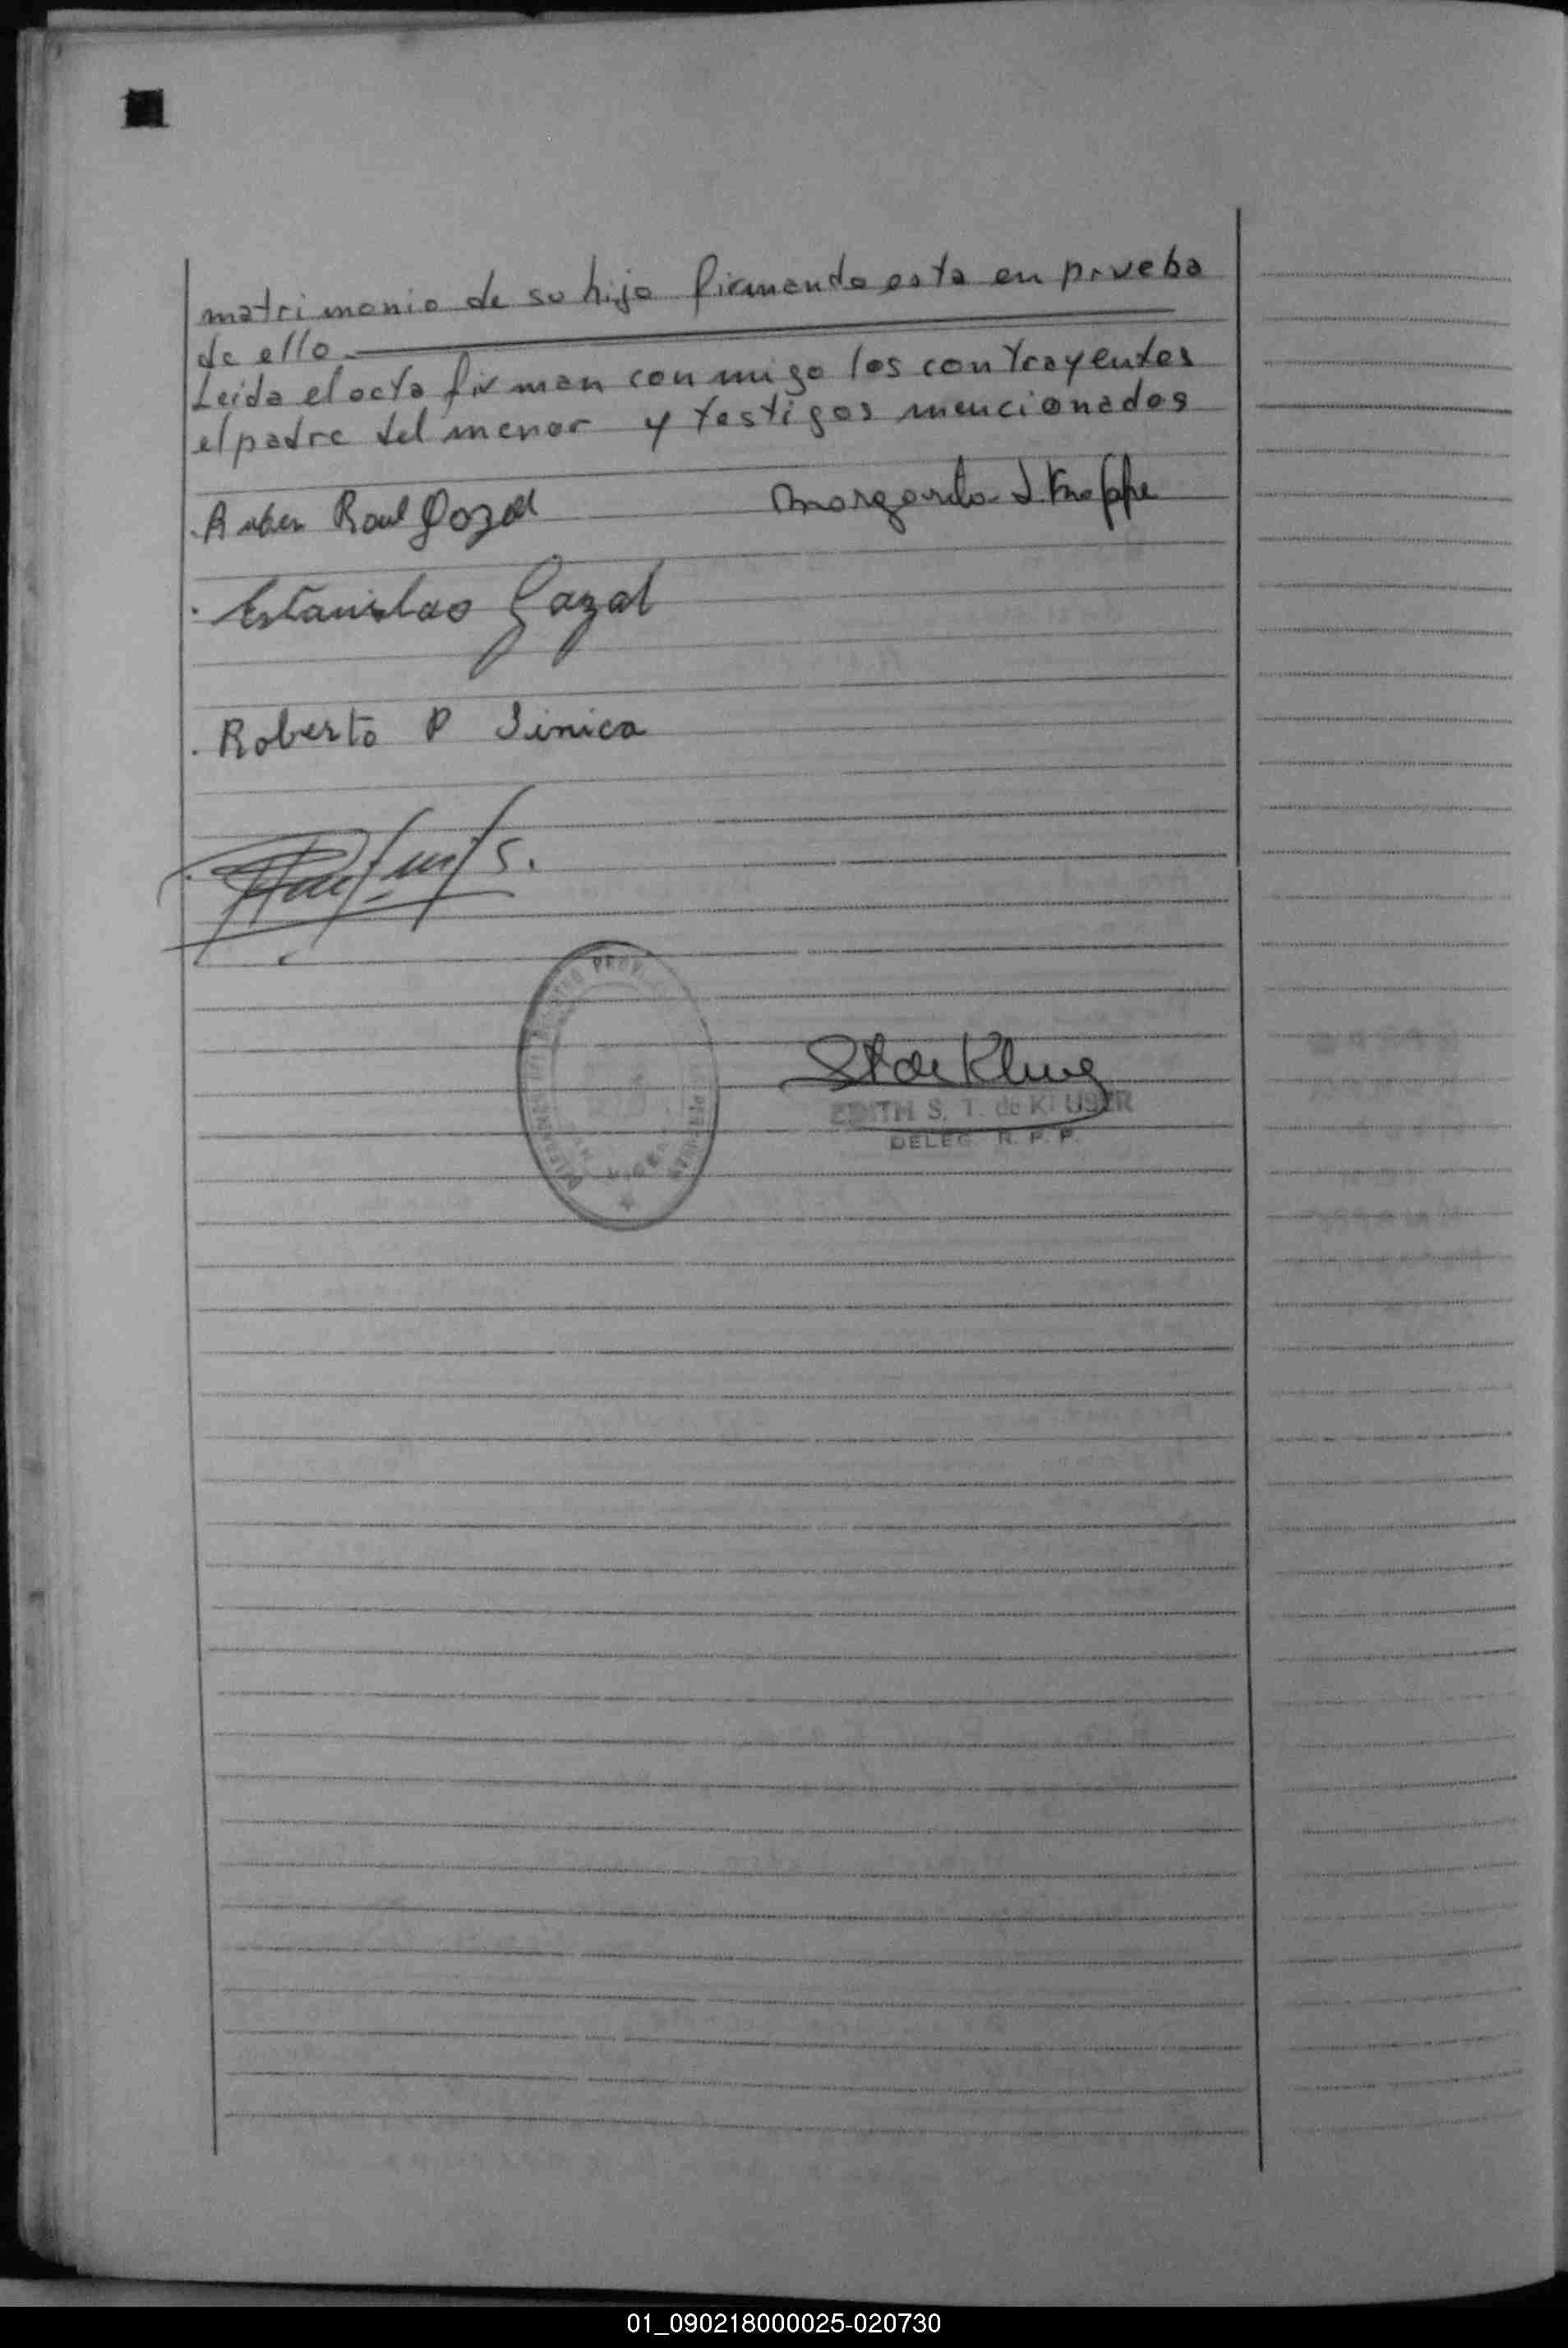 matrimonio de su hijo firmando esta en prueba
de ello
Leida el acta firman conmigo los contrayentes
el padre del menor y testigos mencionados
Ruben Raul Gazal
Margarita
Estanislao Gazal
Roberto P Sinica
EDITH S. T. de KLUSER
DELEG. R. P. P.
01_090218000025-020730